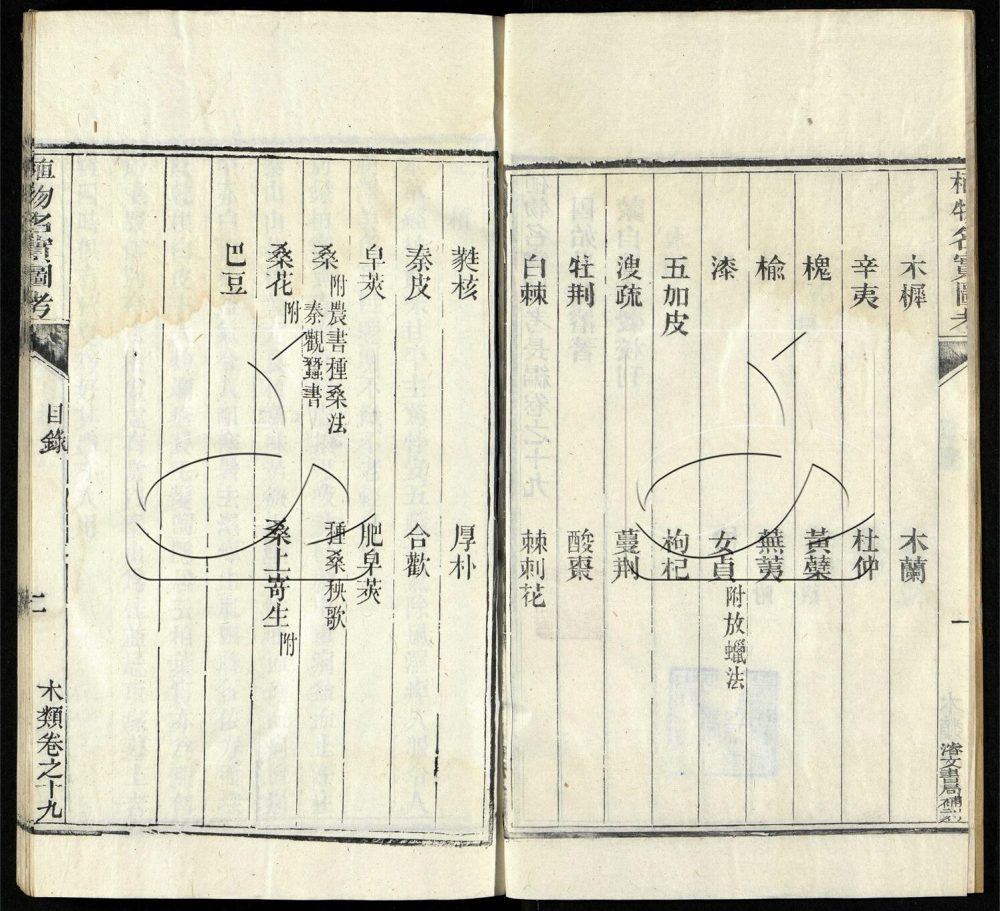 植物名實圖考
木樨 木蘭
辛夷 杜仲
槐 黃蘗
榆 蕪荑
漆 女貞 附放蠟法
五加皮 枸杞
溲疏 蔓荆
牡荆 酸棗
白棘 棘刺花
一
濬文書局補刻
蕤核 厚朴
秦皮 合歡
皁莢 肥皁莢
桑 附農書種桑法 秦觀蠶書 種桑秧歌
桑花 附 桑上寄生 附
巴豆
植物名實圖考
目錄
二
木類卷之十九